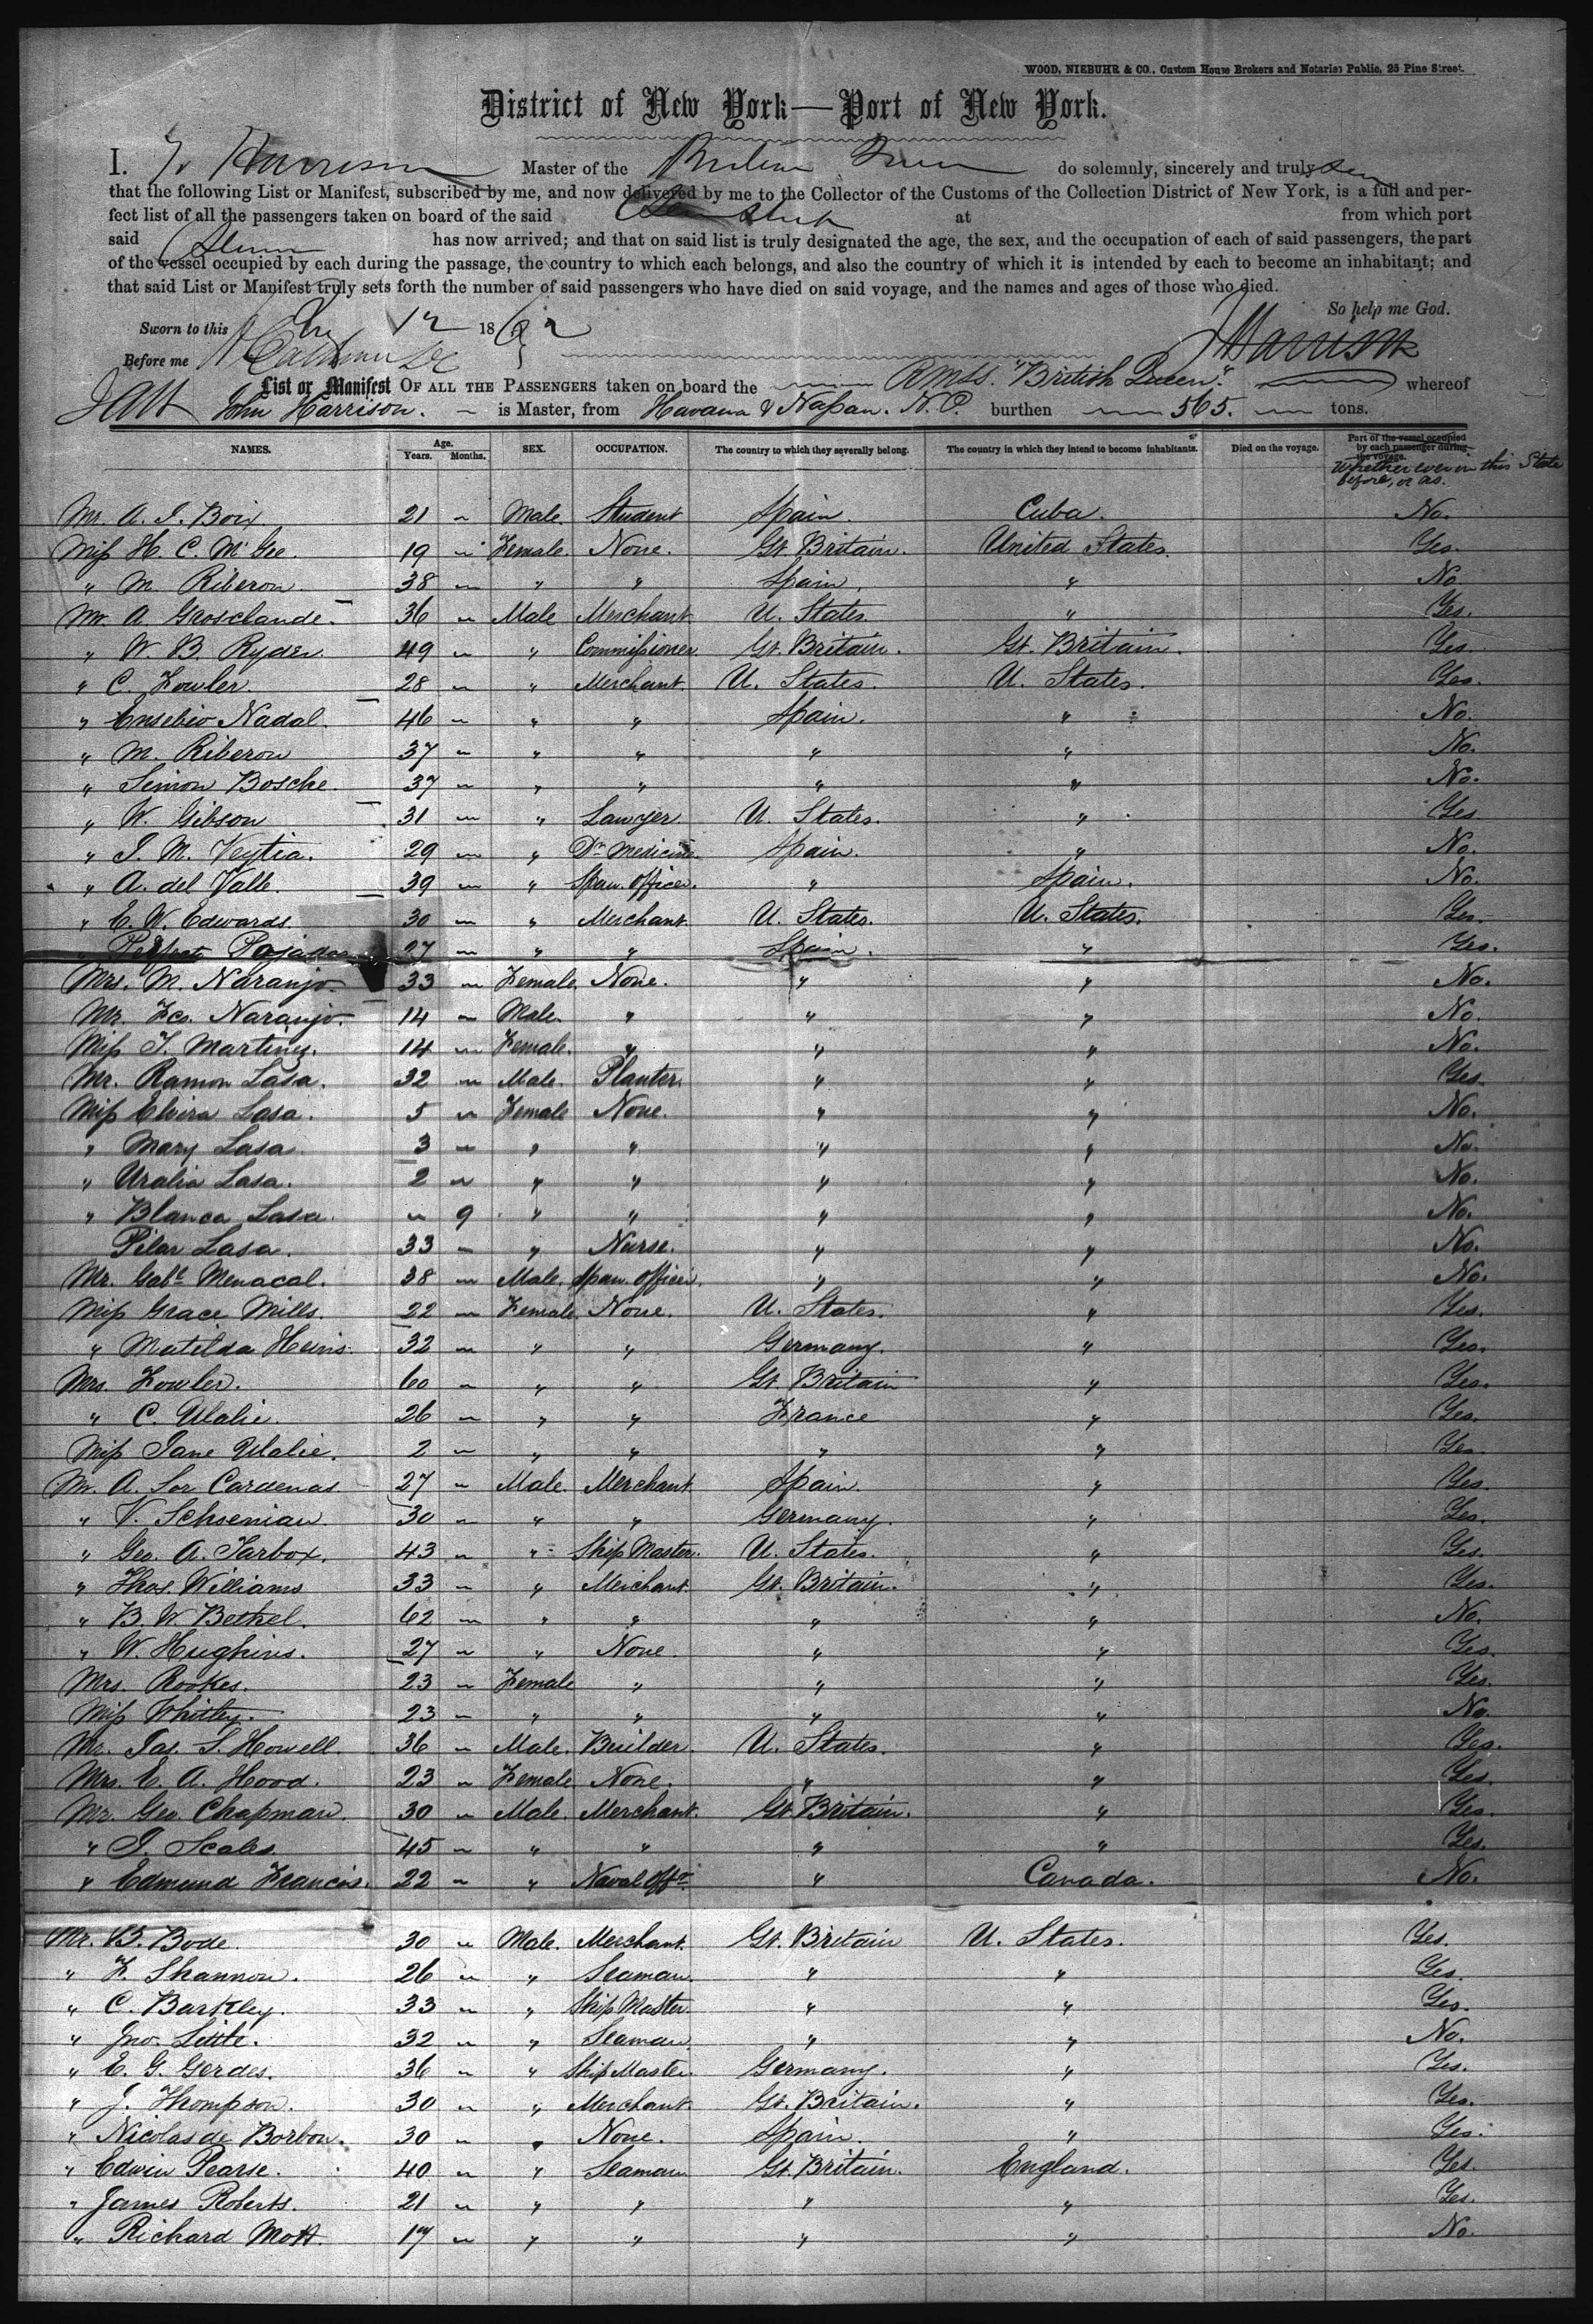 WOOD, NIEBUHR & CO., Custom House Brokers and Notaries Public, 25 Pine Street.
District of New York—Port of New York.
I. J. Harrison Master of the British Queen do solemnly, sincerely and truly
that the following List or Manifest, subscribed by me, and now delivered by me to the Collector of the Customs of the Collection District of New York, is a full and per-
fect list of all the passengers taken on board of the said at from which port
said has now arrived; and that on said list is truly designated the age, the sex, and the occupation of each of said passengers, the part
of the vessel occupied by each during the passage, the country to which each belongs, and also the country of which it is intended by each to become an inhabitant; and
that said List or Manifest truly sets forth the number of said passengers who have died on said voyage, and the names and ages of those who died.
So help me God.
Sworn to this 12 1862
Before me J Harrison
List or Manifest OF ALL THE PASSENGERS taken on board the R.M.S.S. "British Queen". whereof
John Harrison. is Master, from Havana & Nassau. N.P. burthen 565. tons.
NAMES. Age. Years. Months. SEX. OCCUPATION. The country to which they severally belong. The country in which they intend to become inhabitants. Died on the voyage. Part of the vessel occupied by each passenger during the voyage.
Whether ever in this State before, or no.
Mr. A. J. Boix 21 " Male. Student Spain. Cuba. No.
Miss H. C. McGee. 19 " Female. None. Gt. Britain. United States. Yes.
" M. Riberon. 38 " " " Spain. " No
Mr. A. Grosclaude. 36 " Male Merchant. U. States. " Yes.
" W. B. Ryder. 49 " " Commissioner. Gt. Britain. Gt. Britain. Yes.
" C. Fowler. 28 " " Merchant. U. States. U. States. Yes.
" Eusebio Nadal. 46 " " " Spain. " No.
" M. Riberon 37 " " " " " No.
" Simon Bosche. 37 " " " " " No.
" W. Gibson 31 " " Lawyer U. States. " Yes
" J. M. Veytia. 29 " " Dr. Medicine. Spain. " No.
" A. del Valle. 39 " " Span. Officer. " Spain. No.
" E. W. Edwards. 30 " " Merchant. U. States. U. States. Yes.
" 27 " " " Spain. " Yes.
Mrs. M. Naranjo. 33 " Female. None. " " No.
Mr. Fco. Naranjo. 14 " Male. " " " No.
Miss T. Martinez. 14 " Female. " " " No.
Mr. Ramon Lasa. 32 " Male. Planter. " " Yes.
Miss Elvira Lasa. 5 " Female None. " " No.
" Mary Lasa. 3 " " " " " No.
" Uralia Lasa. 2 " " " " " No.
" Blanca Lasa. " 9 " " " " No.
Pilar Lasa. 33 " " Nurse. " " No.
Mr. Gabl. Menacal. 38 " Male. Span. Officer. " " No.
Miss Grace Mills. 22 " Female. None. U. States. " Yes.
" Matilda Heins. 32 " " " Germany. " Yes.
Mrs. Fowler. 60 " " " Gt. Britain " Yes.
" C. Ulalie. 26 " " " France " Yes.
Miss Jane Ulalie. 2 " " " " " Yes.
Mr. A. Lor Cardenas 27 " Male. Merchant. Spain. " Yes.
" V. Schoeniau. 30 " " " Germany. " Yes.
" Geo. A. Tarbox. 43 " " Ship Master. U. States. " Yes.
" Thos. Williams 33 " " Merchant. Gt. Britain. " Yes.
" B. W. Bethel. 62 " " " " " No.
" W. Hughins. 27 " " None. " " Yes.
Mrs. Rookes. 23 " Female " " " Yes.
Miss Whitley. 23 " " " " " No.
Mr. Jas. S. Howell. 36 " Male. Builder. U. States. " Yes.
Mrs. E. A. Hood. 23 " Female None. " " Yes.
Mr. Geo. Chapman. 30 " Male. Merchant. Gt. Britain. " Yes.
" J. Scales. 45 " " " " " Yes.
" Edmund Francis. 22 " " Naval Offr. " Canada. No.
Mr. B. Bode. 30 " Male. Merchant. Gt. Britain U. States. Yes.
" F. Shannon. 26 " " Seaman. " " Yes.
" C. Barkley. 33 " " Ship Master. " " Yes.
" Jno. Little. 32 " " Seaman. " " No.
" E. G. Gerdes. 36 " " Ship Master. Germany. " Yes.
" J. Thompson. 30 " " Merchant. Gt. Britain. " Yes.
" Nicolas de Borbon. 30 " " None. Spain. " Yes.
" Edwin Pearse. 40 " " Seaman Gt. Britain. England. Yes.
" James Roberts. 21 " " " " " Yes.
" Richard Mott. 17 " " " " " No.